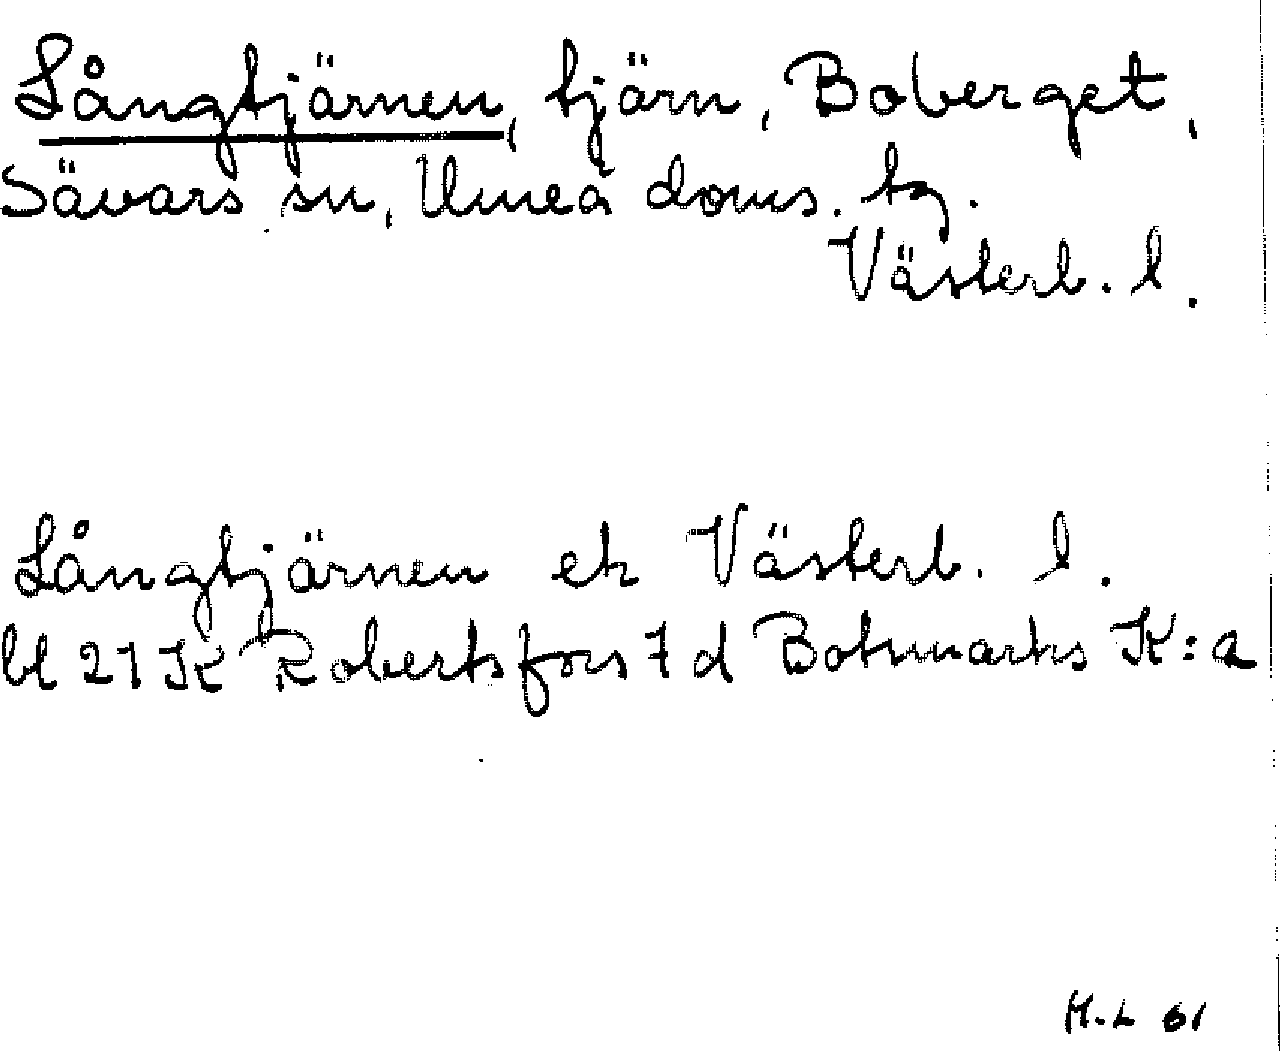 Långtjärnen, tjärn, Boberget,
Sävars sn, Umeå doms. tg.
Västerb. l.
Långtjärnen ek Västerb. l.
bl 21 K Robertsfors 7 d Botsmarks K:a
H.L 61